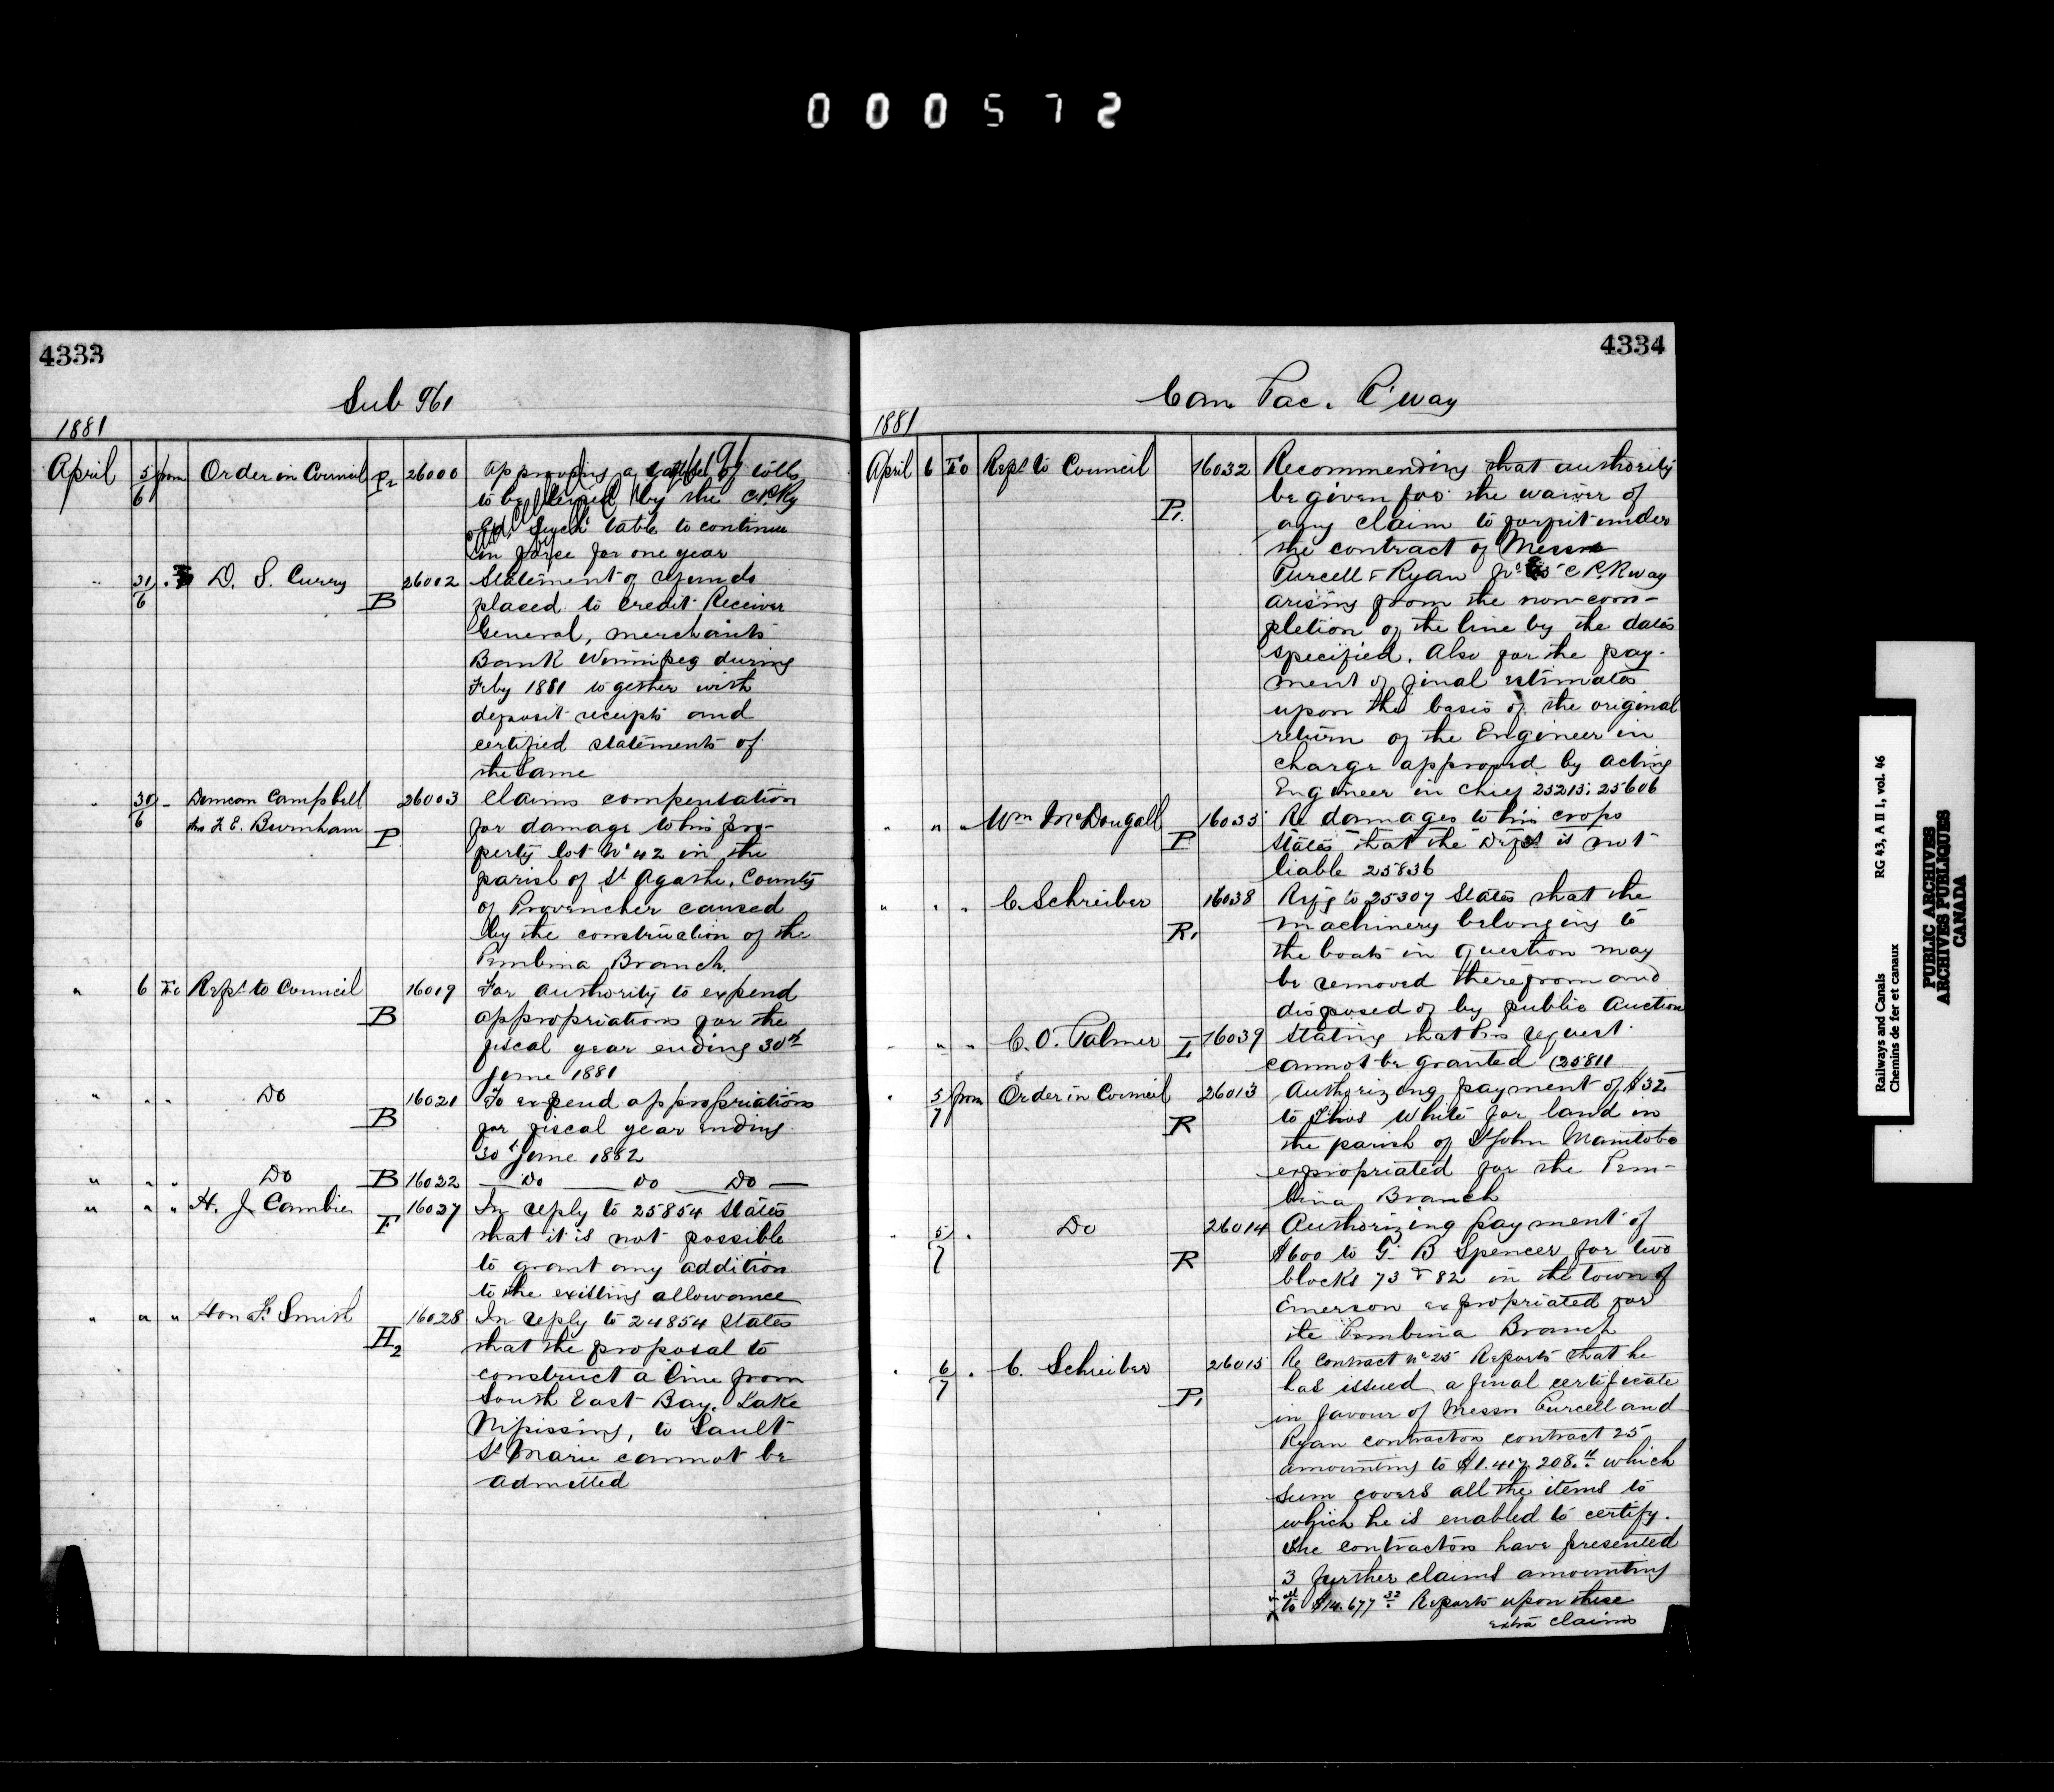 000572
4333
Sub 961
1881
April 5/6 from Order in Council P2 26000 Approving a of tolls
to be levied by the C.P.Ry
Such table to continue
in force for one year
" 31/6 " D. S. Curry B 26002 Statement of refunds
placed to credit Receiver
General, Merchants
Bank Winnipeg during
Feby 1881 together with
deposit receipts and
certified statements of
the same
" 30/6 " Duncan Campbell 26003 Claims compensation
thro F. E. Burnham P for damage to his pro-
perty lot No 42 in the
parish of St Agathe, County
of Provencher caused
by the construction of the
Pembina Branch.
" 6 To Rept to Council 16019 For authority to expend
B appropriations for the
fiscal year ending 30th
June 1881
" " " Do 16021 To expend appropriations
B for fiscal year ending
30th June 1882
" " " Do B 16022 — Do — Do — Do —
" " " H. J. Cambie 16027 In reply to 25854 States
F that it is not possible
to grant any addition
to the existing allowance
" " " Hon F. Smith 16028 In reply to 24854 States
H2 that the proposal to
construct a line from
South East Bay, Lake
Nipissing, to Sault
St Marie cannot be
admitted
4334
Can. Pac. R'way
1881
April 6 To Rept to Council 16032 Recommending that authority
be given for the waiver of
P1. any claim to forfeit under
the contract of Messrs
Purcell & Ryan No 25 C.P.Rway
arising from the non-com-
pletion of the line by the dates
specified. Also for the pay-
ment of final estimates
upon the basis of the original
return of the Engineer in
charge approved by acting
Engineer in Chief 25215; 25606
" " " Wm McDougall 16033 Re damages to his crops
P States that the Dept is not
liable 25836
" " " C. Schreiber 16038 Refg to 25307 States that the
R1 machinery belonging to
the boats in question may
be removed therefrom and
disposed of by public Auction
" " " C. O. Palmer I 16039 Stating that his request
cannot be granted (25811
" 5/7 from Order in Council 26013 Authorizing payment of $32
R to Thos White for land in
the parish of St John Manitoba
expropriated for the Pem-
bina Branch
" 5/7 " Do 26014 Authorizing payment of
R $600 to G. B Spencer for two
blocks 73 & 82 in the town of
Emerson expropriated for
the Pembina Branch
" 6/7 " C. Schreiber 26015 Re Contract No 25 Reports that he
has issued a final certificate
P1 in favour of Messrs Purcell and
Ryan contractors contract 25
amounting to $1.417.208. which
sum covers all the items to
which he is enabled to certify.
The contractors have presented
3 further claims amounting
to $14.677 32 Reports upon these
extra claims
Railways and Canals RG 43, A II 1, vol. 46
Chemins de fer et canaux
PUBLIC ARCHIVES
ARCHIVES PUBLIQUES
CANADA